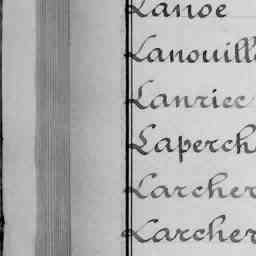 Lanoe
Lanouill
Lanriec
Laperch
Larcher
Larcher